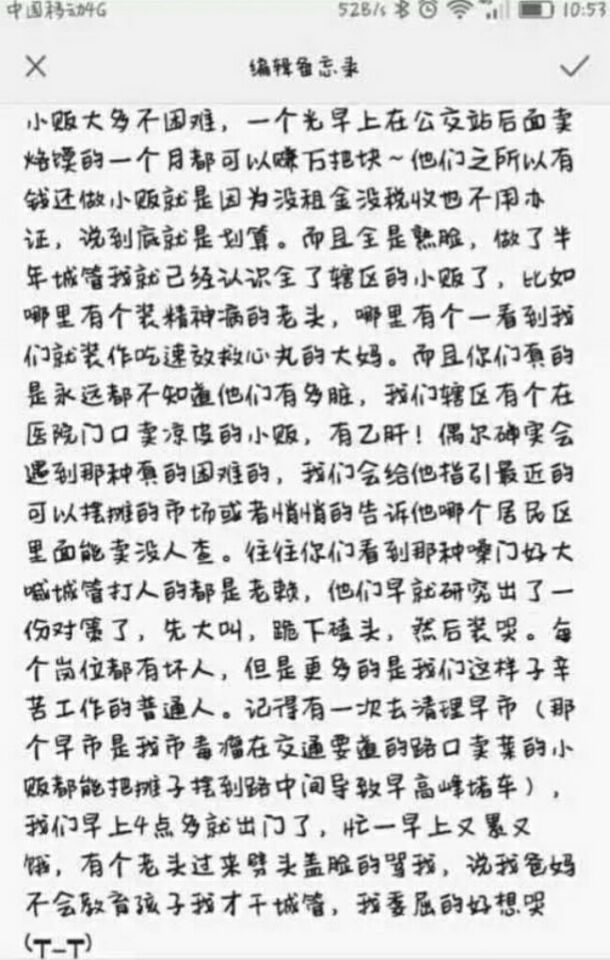 中国移动4G 528/s 10:53
编辑备忘录
小贩大多不困难，一个光早上在公交站后面卖
烙馍的一个月都可以赚万把块~他们之所以有
钱还做小贩就是因为没租金没税收也不用办
证，说到底就是划算。而且全是熟脸，做了半
年城管我就已经认识全了辖区的小贩了，比如
哪里有个装精神病的老头，哪里有个一看到我
们就装作吃速放救心丸的大妈。而且你们真的
是永远都不知道他们有多脏，我们辖区有个在
医院门口卖凉皮的小贩，有乙肝！偶尔确实会
遇到那种真的困难的，我们会给他指引最近的
可以摆摊的市场或者悄悄的告诉他哪个居民区
里面能卖没人查。往往你们看到那种嗓门好大
喊城管打人的都是老赖，他们早就研究出了一
份对策了，先大叫，跪下磕头，然后装哭。每
个岗位都有坏人，但是更多的是我们这样子辛
苦工作的普通人。记得有一次去清理早市（那
个早市是我市毒瘤在交通要道的路口卖菜的小
贩都能把摊子摆到路中间导致早高峰堵车），
我们早上4点多就出门了，忙一早上又累又
饿，有个老头过来劈头盖脸的骂我，说我爸妈
不会教育孩子我才干城管，我委屈的好想哭
(┬_┬)